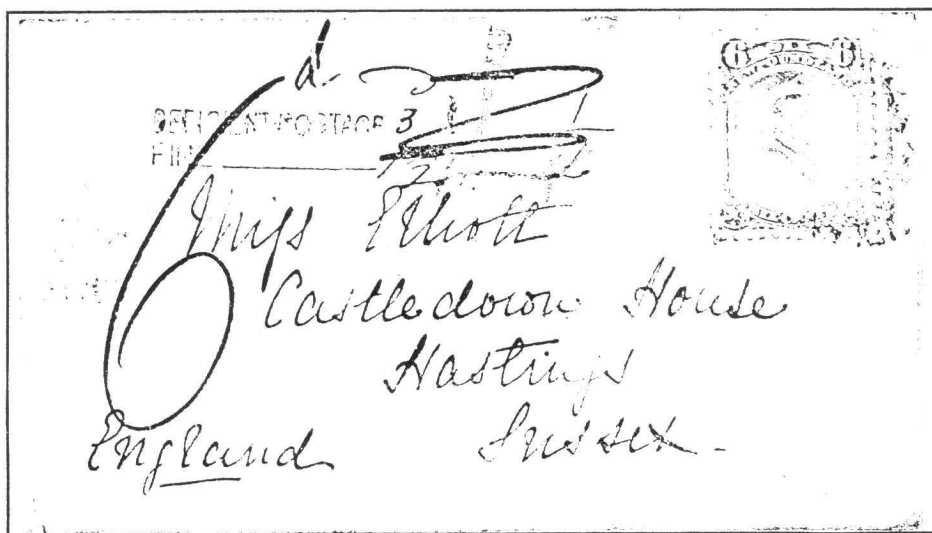 6d 3
6 6
DEFICIENT POSTAGE 3
FINE
Miss Elliott
Castledown House
Hastings
Sussex.
England